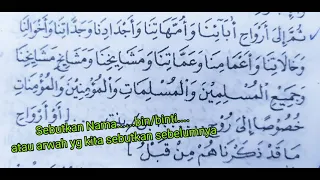 ثُمَّ إِلَى أَرْوَاحِ أٰبَآئِنَا وَأُمَّهَاتِنَا وَأَجْدَادِنَا وَجَدَّاتِنَا وَأَخْوَالِنَا
وَخَالَاتِنَا وَأَعْمَامِنَا وَعَمَّاتِنَا وَمَشَايِخِنَا وَمَشَايِخِ مَشَايِخِنَا
وَجَمِيْعِ الْمُسْلِمِيْنَ وَالْمُسْلِمَاتِ وَالْمُؤْمِنِيْنَ وَالْمُؤْمِنَاتِ
خُصُوْصًا إِلَى رُوْحِ
Sebutkan Nama.....bin/binti....
أَوْ أَرْوَاحِ
atau arwah yg kita sebutkan sebelumnya
مَا قَدْ ذَكَرْنَا هُمْ مِنْ قَبْلُ